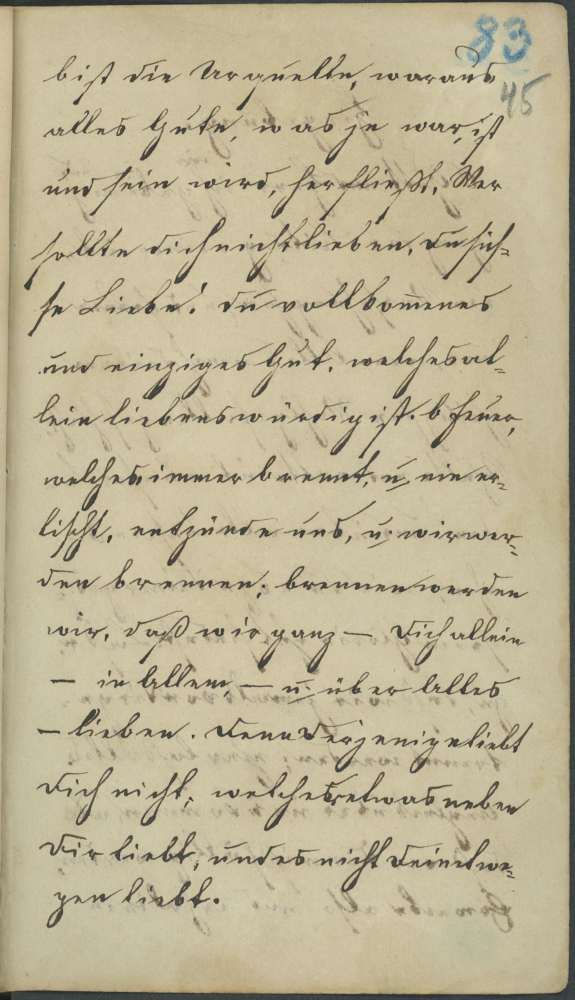 83
45
bist die Urquelle, woraus
alles Gute, was je war, ist
und sein wird, herfließt. Wer
sollte dich nicht lieben, du süs-
se Liebe! du vollkom̄enes
und einziges Gut, welches al-
lein liebenswürdig ist. O Feuer,
welches immer brennt, u. nie er-
lischt, entzünde uns, u. wir wer-
den brennen; brennen werden
wir, daß wir ganz — Dich allein
— in Allem, — u. über Alles
— lieben. Denn Derjenige liebt
Dich nicht, welcher etwas neben
Dir liebt, und es nicht Deinetwe-
gen liebt.